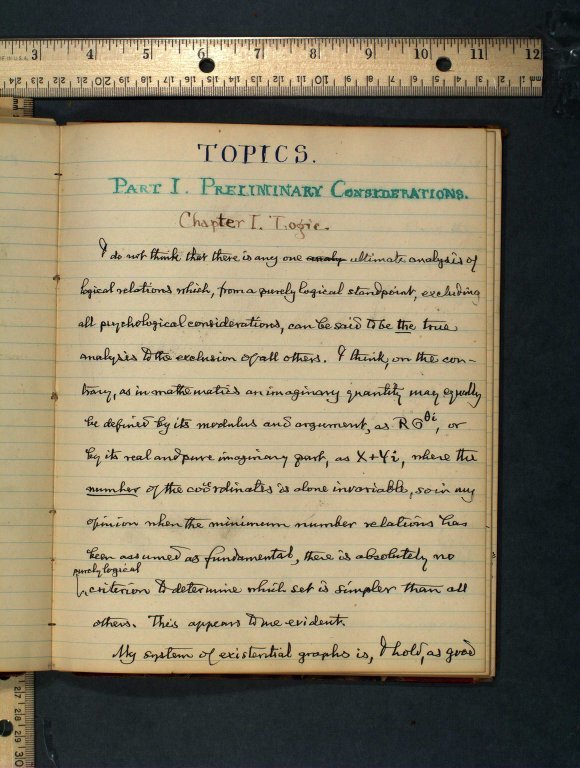 TOPICS.
PART I. PRELIMINARY CONSIDERATIONS.
Chapter I. Logic.
I do not think that there is any one analy ultimate analysis of
logical relations which, from a purely logical standpoint, excluding
all psychological considerations, can be said to be the true
analysis to the exclusion of all others. I think, on the con-
trary, as in mathematics an imaginary quantity may equally
be defined by its modulus and argument, as R ⅁^θi, or
by its real and pure imaginary part, as X+Yi, where the
number of the coördinates is alone invariable, so in my
opinion when the minimum number relations has
been assumed as fundamental, there is absolutely no
purely logical
criterion to determine which set is simpler than all
others. This appears to me evident.
My system of existential graphs is, I hold, as good